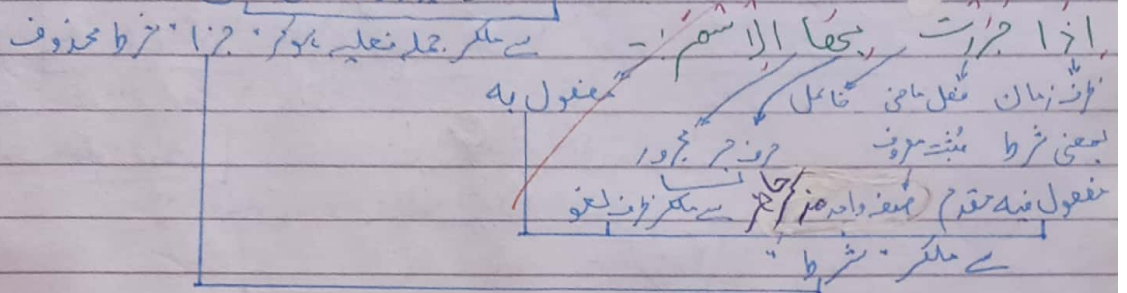 اذا جررت بھا الاسم :- سے ملکر جملہ فعلیہ ہوکر "جزا" شرط محذوف
ظرف زمان فعل ماضی فاعل مفعول بہ
بمعنی شرط مثبت معروف حرف جر مجرور
مفعول فیہ مقدم صیغہ واحد مذکر حاضر سے ملکر ظرف لغو
سے ملکر "شرط"